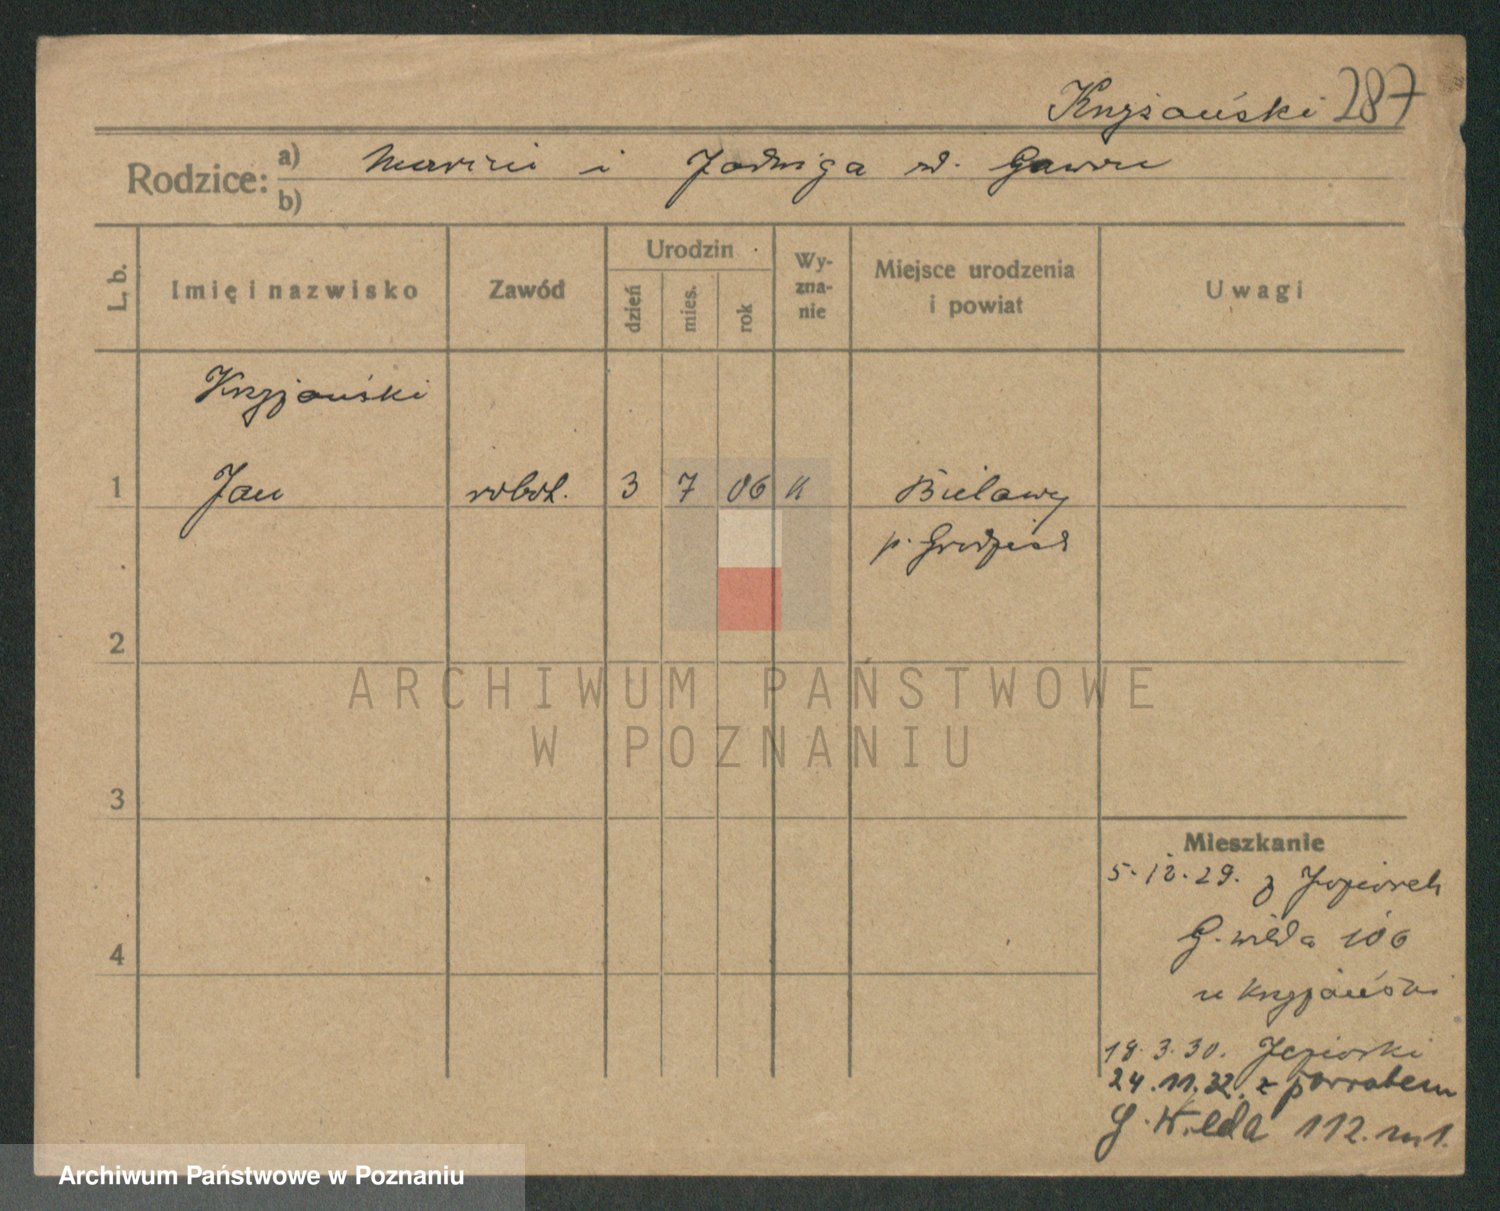 Krzyżański 287
Rodzice: a) Marcin i Jadwiga zd.
b)
L. b. Imię i nazwisko Zawód Urodzin dzień mies. rok Wy-zna-nie Miejsce urodzenia i powiat Uwagi
Krzyżański
1 Jan robot. 3 7 06 k Bielawy
p. Grodzisk
2
ARCHIWUM PAŃSTWOWE
W POZNANIU
3
Mieszkanie
5.12.29. z
4 G. Wilda 106
u Krzyżański
18.3.30. Jeziorki
24.11.32. z powrotem
G. Wilda 112. m 1.
Archiwum Państwowe w Poznaniu